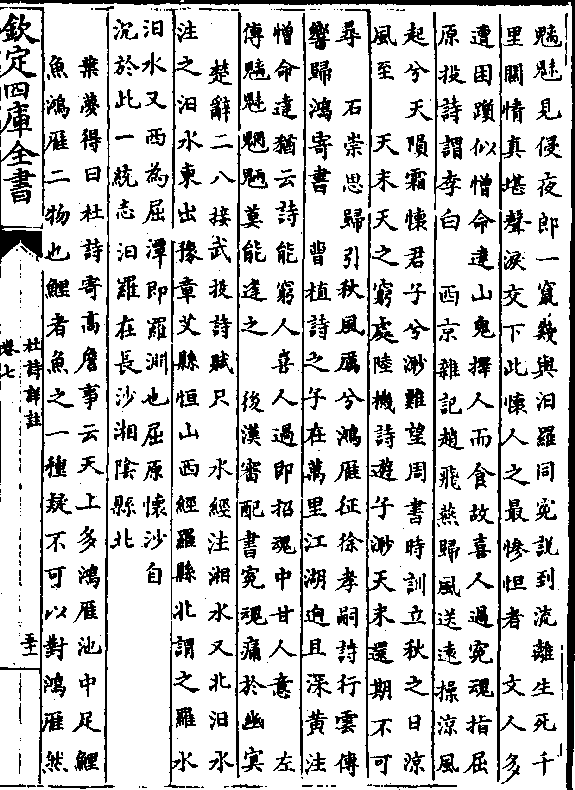 魑魅見侵夜郎一竄幾與汨羅同寃說到流離生死千
里關情真堪聲淚交下此懷人之最慘怛者　文人多
遭困躓似憎命達山鬼擇人而食故喜人過寃魂指屈
原投詩謂李白　西京雜記趙飛燕歸風送遠操涼風
起兮天隕霜懷君子兮渺難望周書時訓立秋之日涼
風至　天末天之窮處陸機詩遊子渺天末還期不可
尋　石崇思歸引秋風厲兮鴻雁征徐孝嗣詩行雲傳
響歸鴻寄書　曹植詩之子在萬里江湖迥且深黄注
憎命達猶云詩能窮人喜人過即招魂中甘人意　左
傳魑魅魍魎莫能逢之　後漢審配書寃魂痛於幽冥
楚辭二八接武投詩賦只　水經注湘水又北汨水
注之汨水東出豫章艾縣恒山西經羅縣北謂之羅水
汨水又西為屈潭即羅淵也屈原懷沙自
沉於此一統志汨羅在長沙湘陰縣北
葉夢得曰杜詩寄高詹事云天上多鴻雁池中足鯉
魚鴻雁二物也鯉者魚之一種疑不可以對鴻雁然
欽定四庫全書
杜詩詳註
卷七